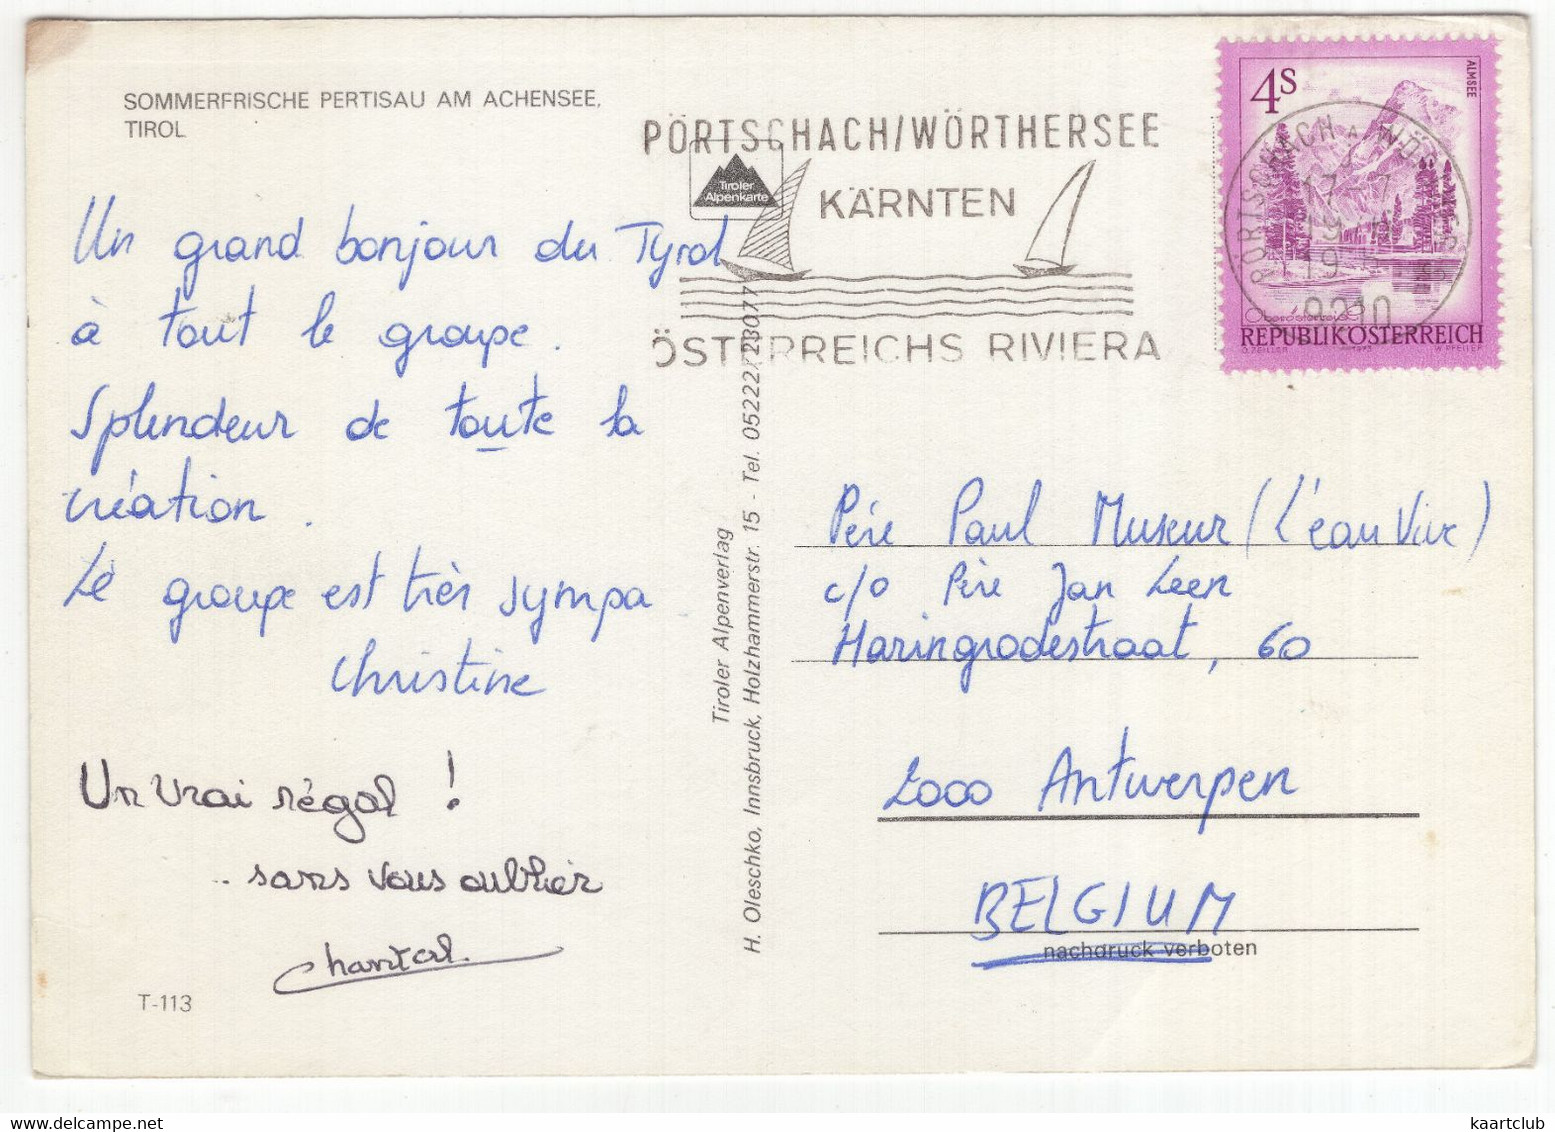 SOMMERFRISCHE PERTISAU AM ACHENSEE,
TIROL
Un grand bonjour du Tyrol
à tout le groupe.
Splendeur de toute la
création.
Le groupe est très sympa
Christine
Un vrai régal !
.. sans vous oublier
Chantal.
T-113
Tiroler
Alpenkarte
PÖRTSCHACH/WÖRTHERSEE
KÄRNTEN
ÖSTERREICHS RIVIERA
Tiroler Alpenverlag
H. Oleschko, Innsbruck, Holzhammerstr. 15 - Tel. 05222/23077
4S
ALMSEE
PÖRTSCHACH A. WÖRTHER
9210
Oberösterreich
REPUBLIK ÖSTERREICH
O. ZEILLER 1973 W. PFEILER
Père Paul Museur (L'eau Vive)
c/o Père Jan Leen
Haringrodestraat, 60
2000 Antwerpen
BELGIUM
nachdruck verboten
kaartclub